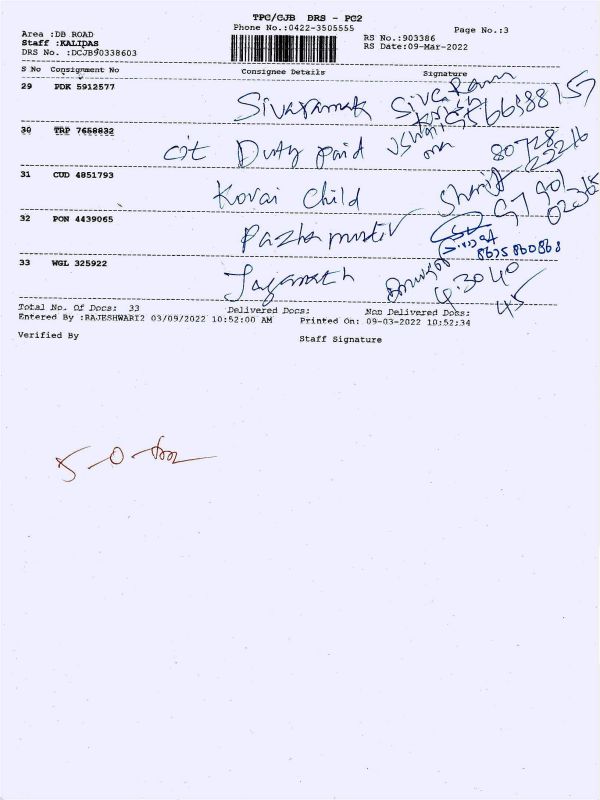 TPC/CJB DRS - PC2
Phone No.:0422-3505555
Page No.:3
Area :DB ROAD
Staff :KALIDAS
DRS No. :DCJB90338603
RS No.:903386
RS Date:09-Mar-2022
S No Consignment No Consignee Details Signature
29 PDK 5912577 Sivaramak
30 TRP 7658832 Duty paid 80728 22216
31 CUD 4851793 Kovai Child
32 PON 4439065 8675860868
33 WGL 325922 Jaganath
Total No. Of Docs: 33 Delivered Docs: Non Delivered Docs:
Entered By :RAJESHWARI2 03/09/2022 10:52:00 AM Printed On: 09-03-2022 10:52:34
Verified By Staff Signature